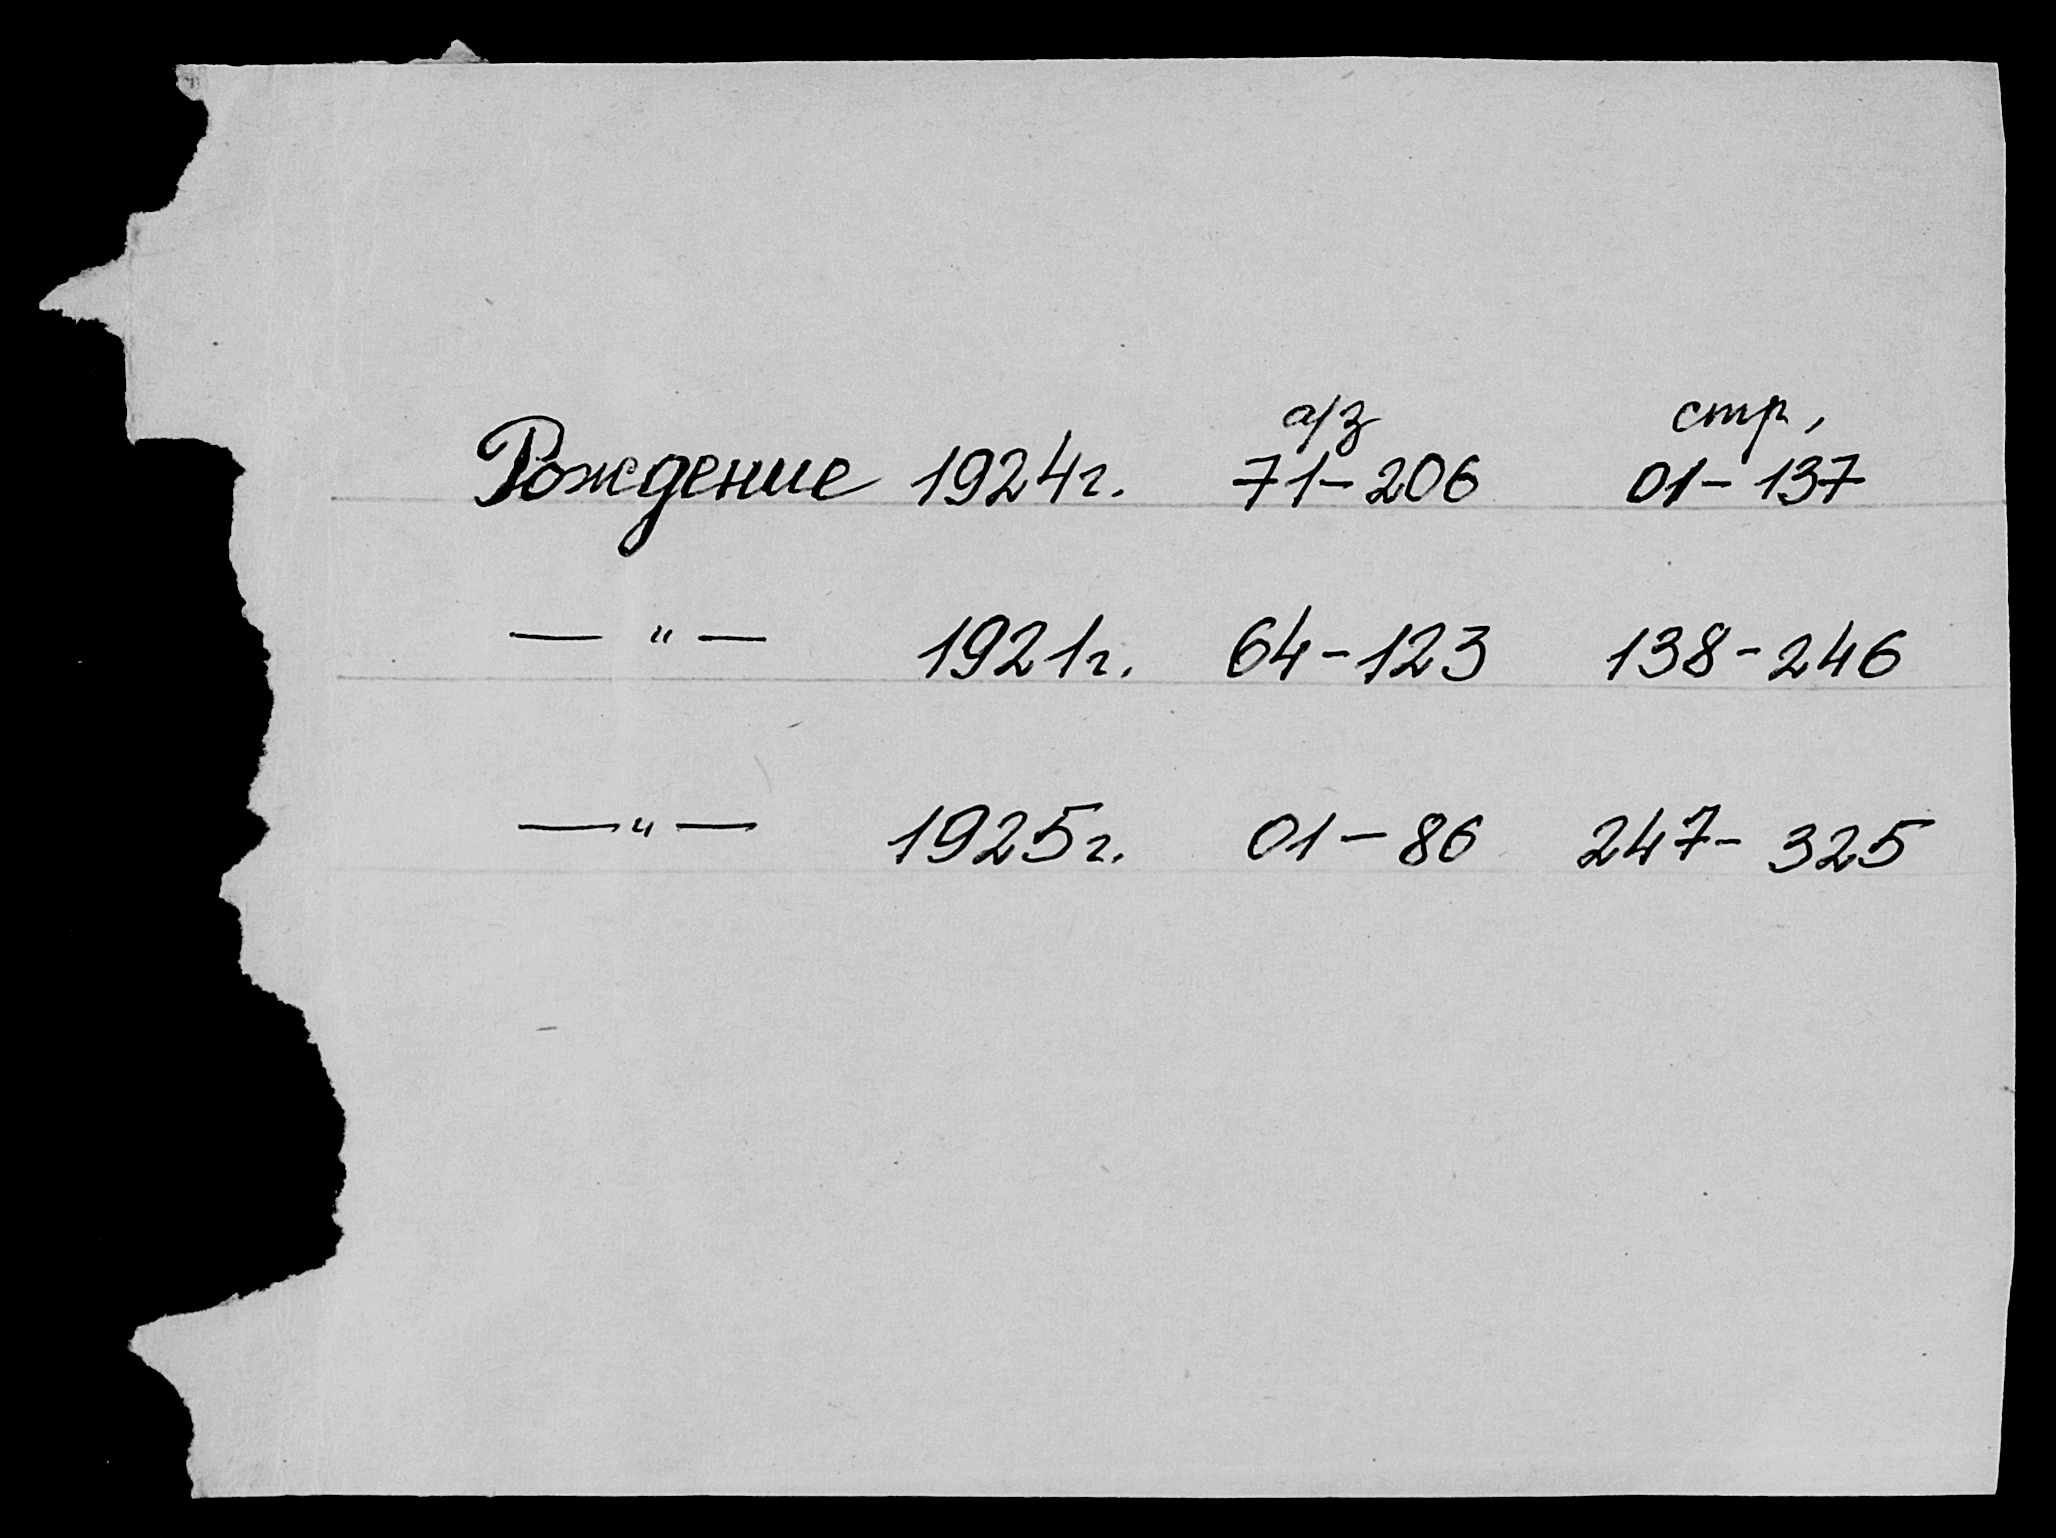 а/з стр.
Рождение 1924г. 71-206 01-137
— " — 1921г. 64-123 138-246
— " — 1925г. 01-86 247-325